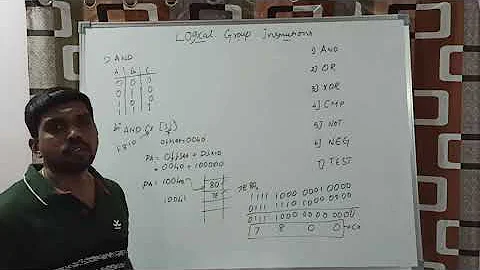 Logical Group Instructions
1) AND
A B C
0 0 0
0 1 0
1 0 0
1 1 1
AND CX [SI]
Offset = 0040
PA = Offset + D×10
= 0040 + 100000
PA = 10040
80
10041
78
1111 1000 0001 0000
0111 1000 0000
0111 1000 0000 0000
7 8 0 0
1) AND
2) OR
3) XOR
4] CMP
5] NOT
6) NEG
7) TEST